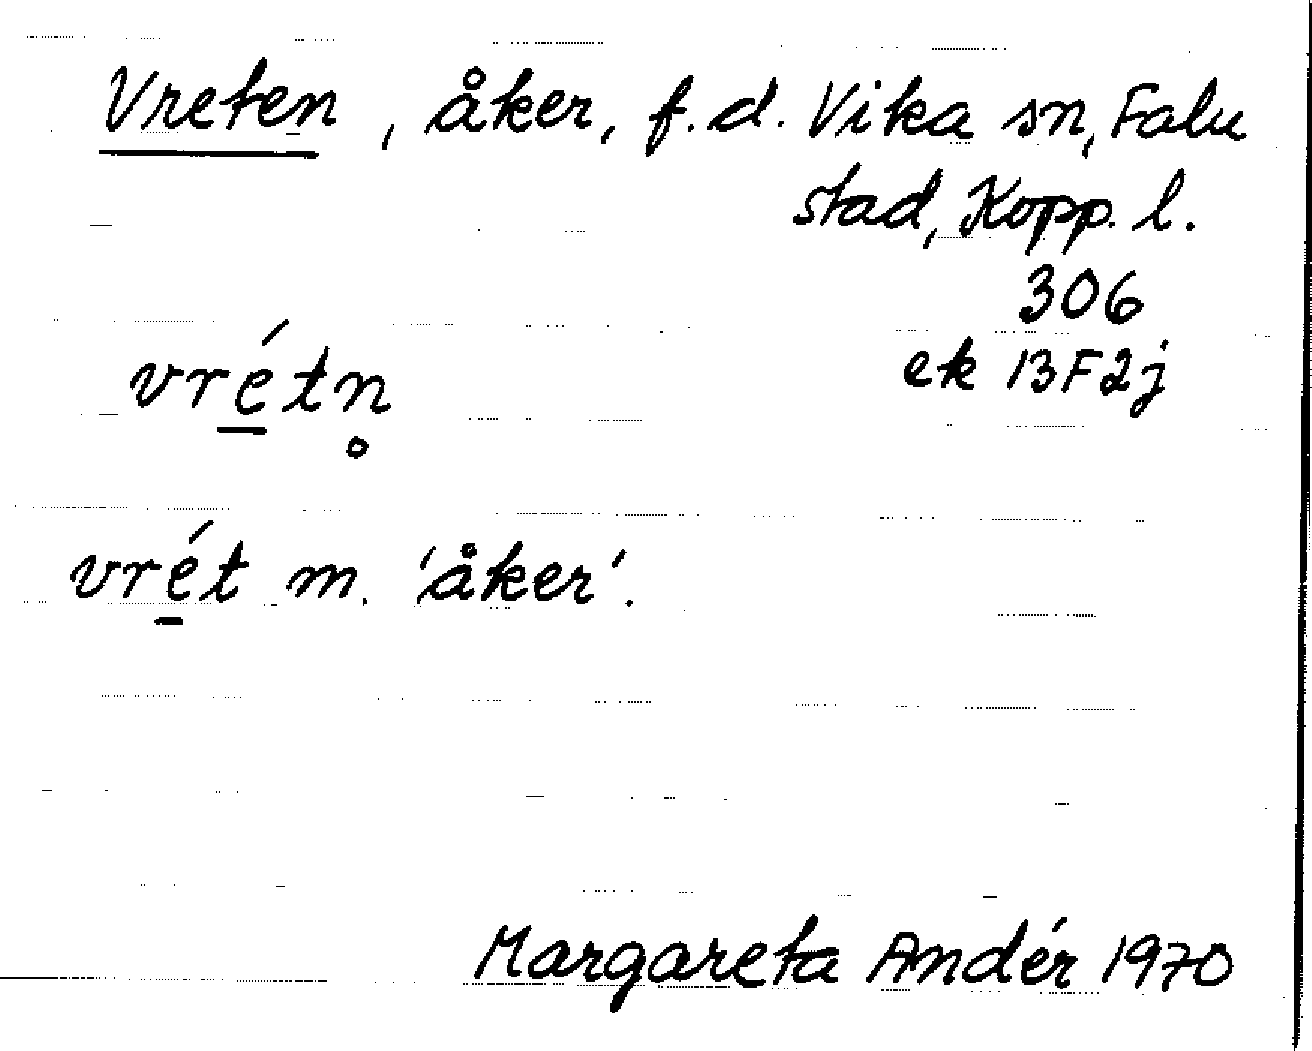 Vreten, åker, f.d. Vika sn, Falu
stad, Kopp. l.
306
ek 13F2j
vré̱tn̥
vré̱t m. 'åker'.
Margareta Andér 1970